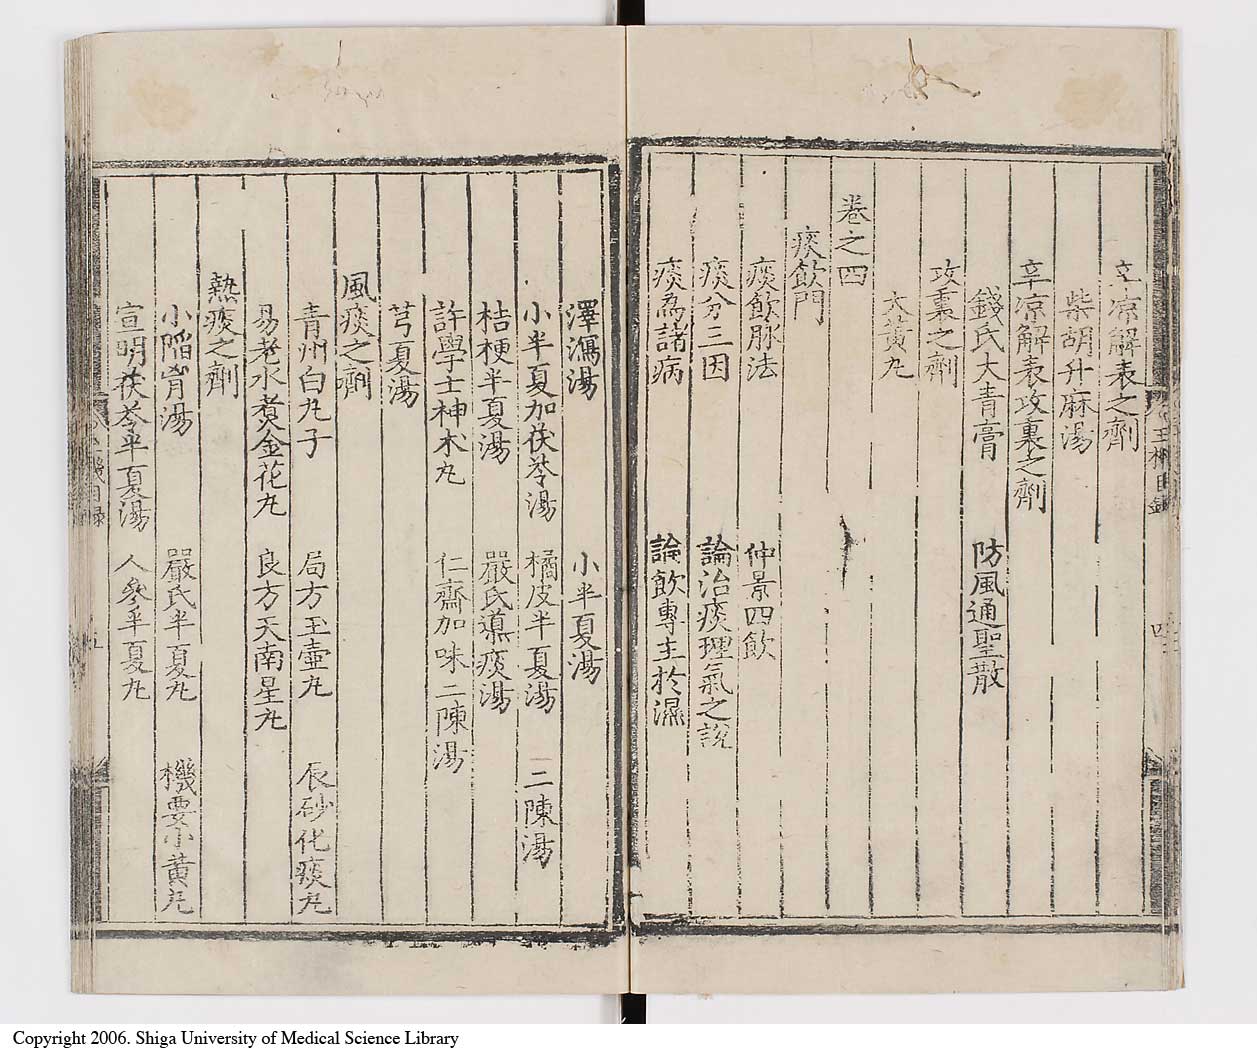 辛凉解表之劑
柴胡升麻湯
辛凉解表攻裏之劑
錢氏大青膏 防風通聖散
攻裏之劑
大黃丸
卷之四
痰飲門
痰飲脉法 仲景四飲
痰分三因 論治痰理氣之說
痰為諸病 論飲專主於濕
澤瀉湯 小半夏湯
小半夏加茯苓湯 橘皮半夏湯 二陳湯
桔梗半夏湯 嚴氏導痰湯
許學士神朮丸 仁齋加味二陳湯
芎夏湯
風痰之劑
青州白丸子 局方玉壺丸 辰砂化痰丸
易老水煮金花丸 良方天南星丸
熱痰之劑
小陷胷湯 嚴氏半夏丸 機要小黃丸
宣明茯苓半夏湯 人參半夏丸
Copyright 2006. Shiga University of Medical Science Library